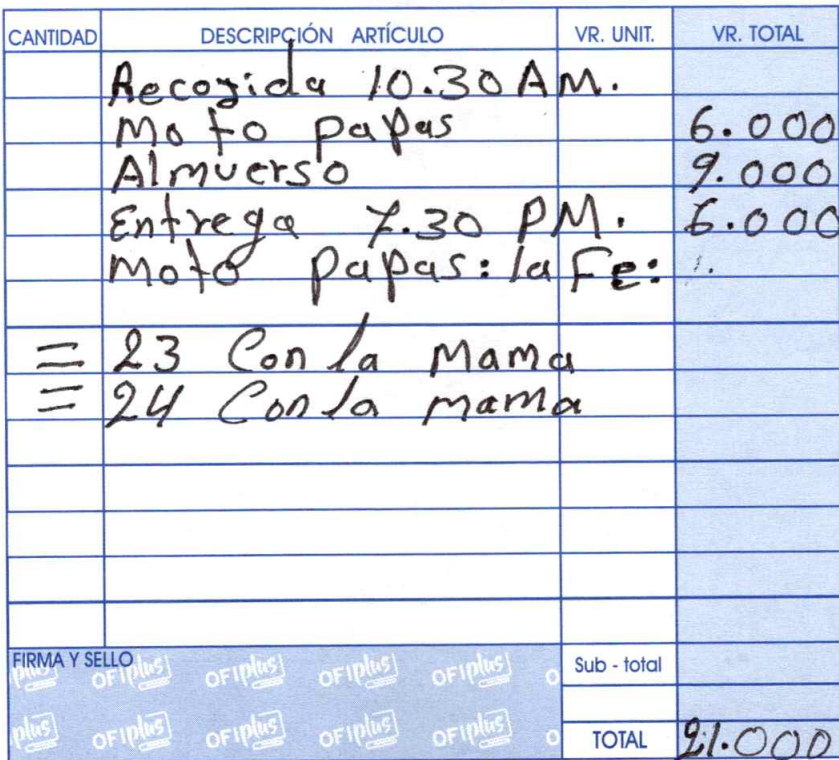 CANTIDAD DESCRIPCIÓN ARTÍCULO VR. UNIT. VR. TOTAL
Recogida 10.30 AM.
Moto papas 6.000
Almuerso 9.000
Entrega 7.30 PM. 6.000
Moto papas: la Fe:
= 23 Con la Mama
= 24 Con la mama
FIRMA Y SELLO Sub - total
plus OFIplus OFIplus OFIplus OFIplus O
plus OFIplus OFIplus OFIplus OFIplus O
TOTAL 21.000